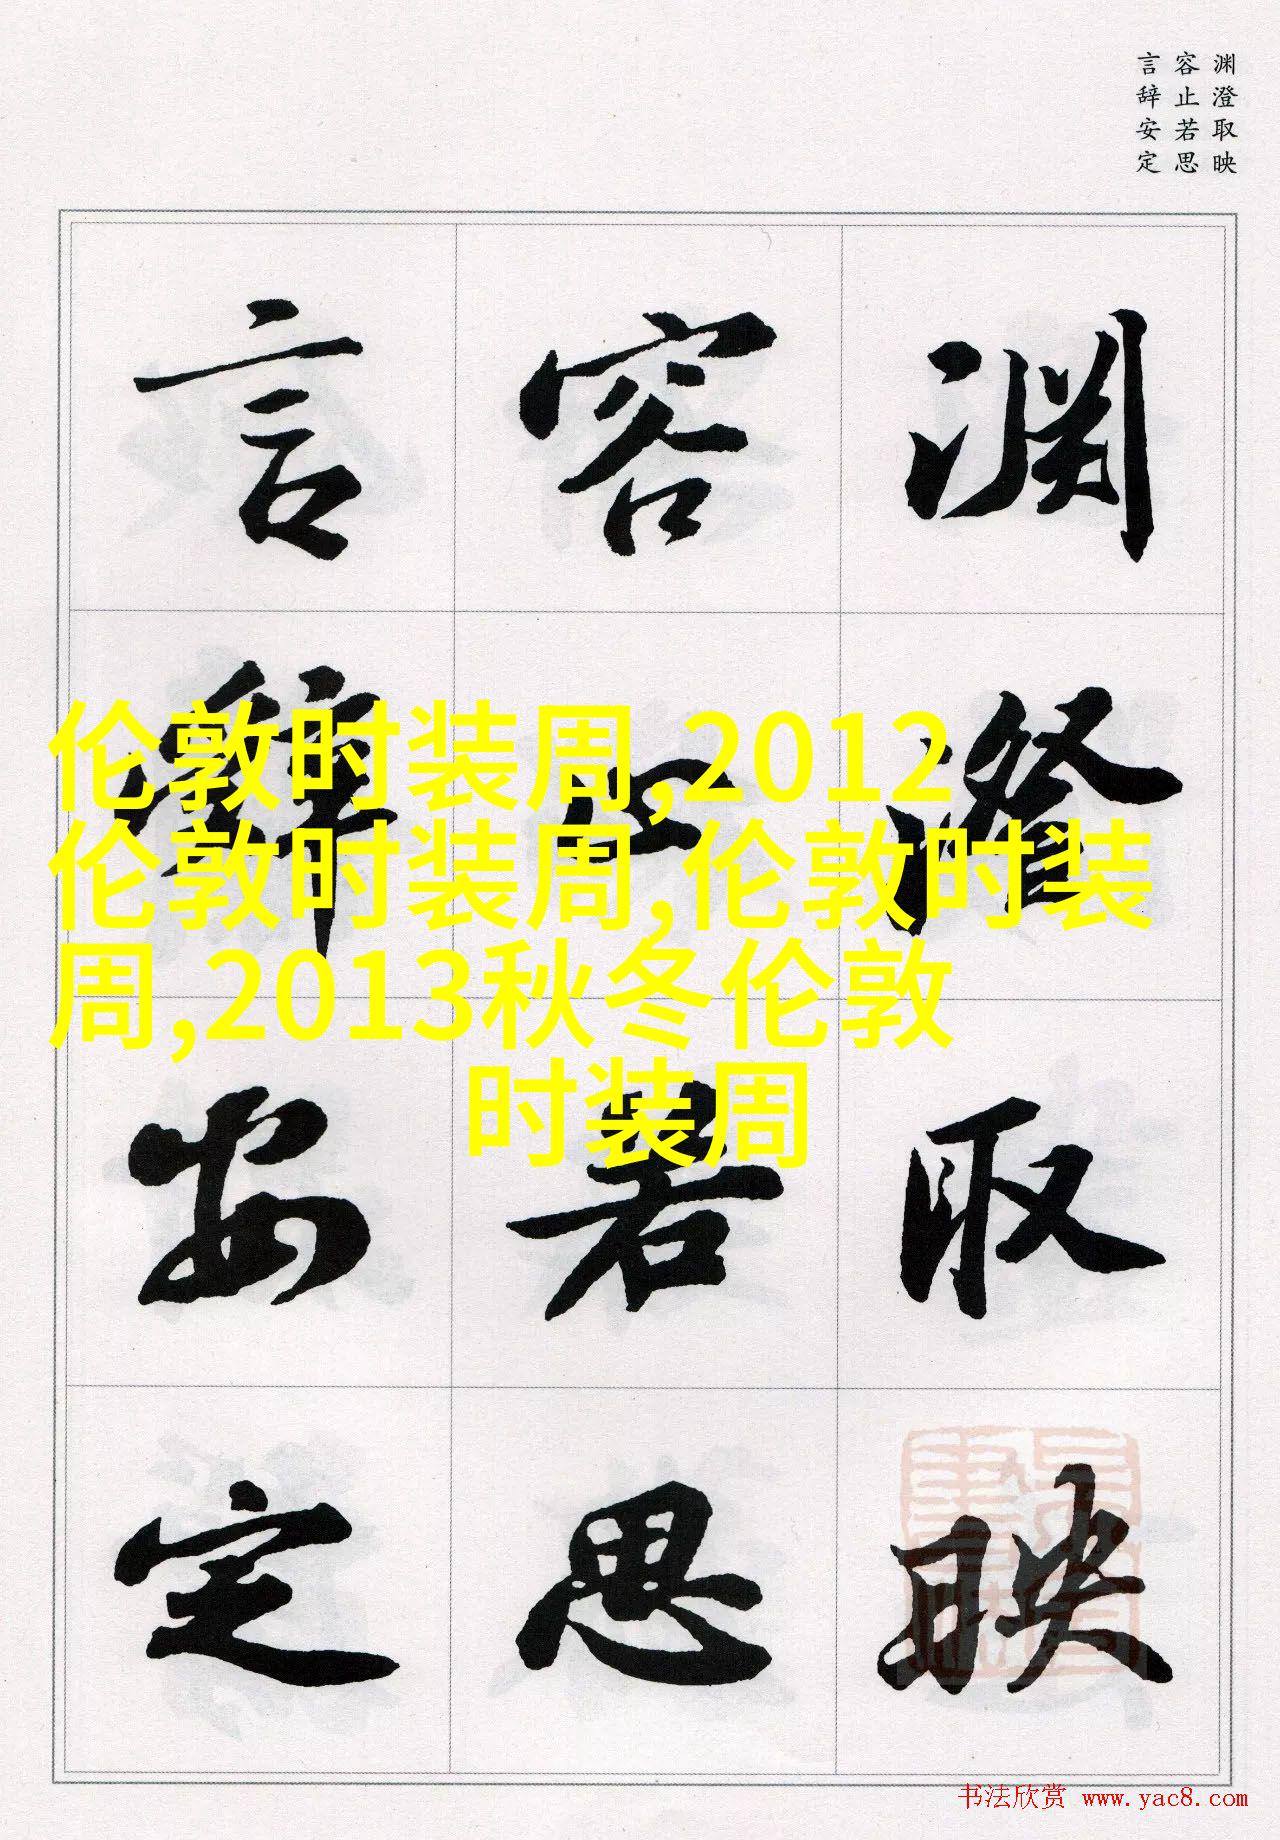 渊澄取映
容止若思
言辞安定
渊澄取映
容止若思
言辞安定
伦敦时装周,2012
伦敦时装周,伦敦时装
周,2013秋冬伦敦
时装周
书法欣赏 www.yac8.com